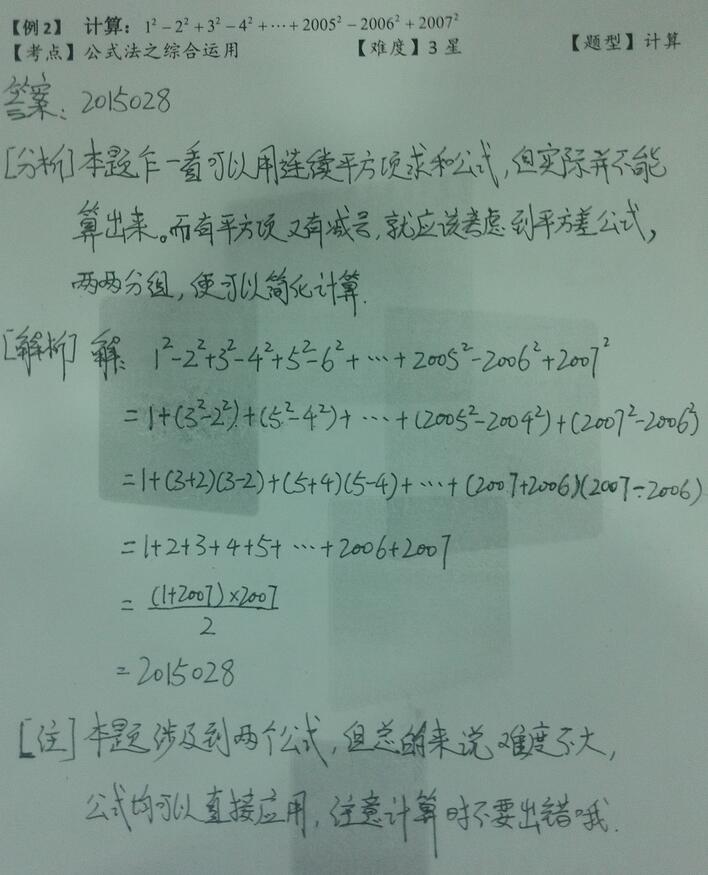 【例2】 计算：1²－2²＋3²－4²＋⋯＋2005²－2006²＋2007²
【考点】公式法之综合运用 【难度】3星 【题型】计算
答案：2015028
[分析]本题乍一看可以用连续平方项求和公式，但实际并不能
算出来。而有平方项又有减号，就应该考虑到平方差公式，
两两分组，便可以简化计算．
[解析] 解： 1²-2²+3²-4²+5²-6²+⋯+2005²-2006²+2007²
=1+(3²-2²)+(5²-4²)+⋯+(2005²-2004²)+(2007²-2006²)
=1+(3+2)(3-2)+(5+4)(5-4)+⋯+(2007+2006)(2007-2006)
=1+2+3+4+5+⋯+2006+2007
=(1+2007)×2007
2
=2015028
[注] 本题涉及到两个公式，但总的来说难度不大，
公式均可以直接应用，注意计算时不要出错哦．